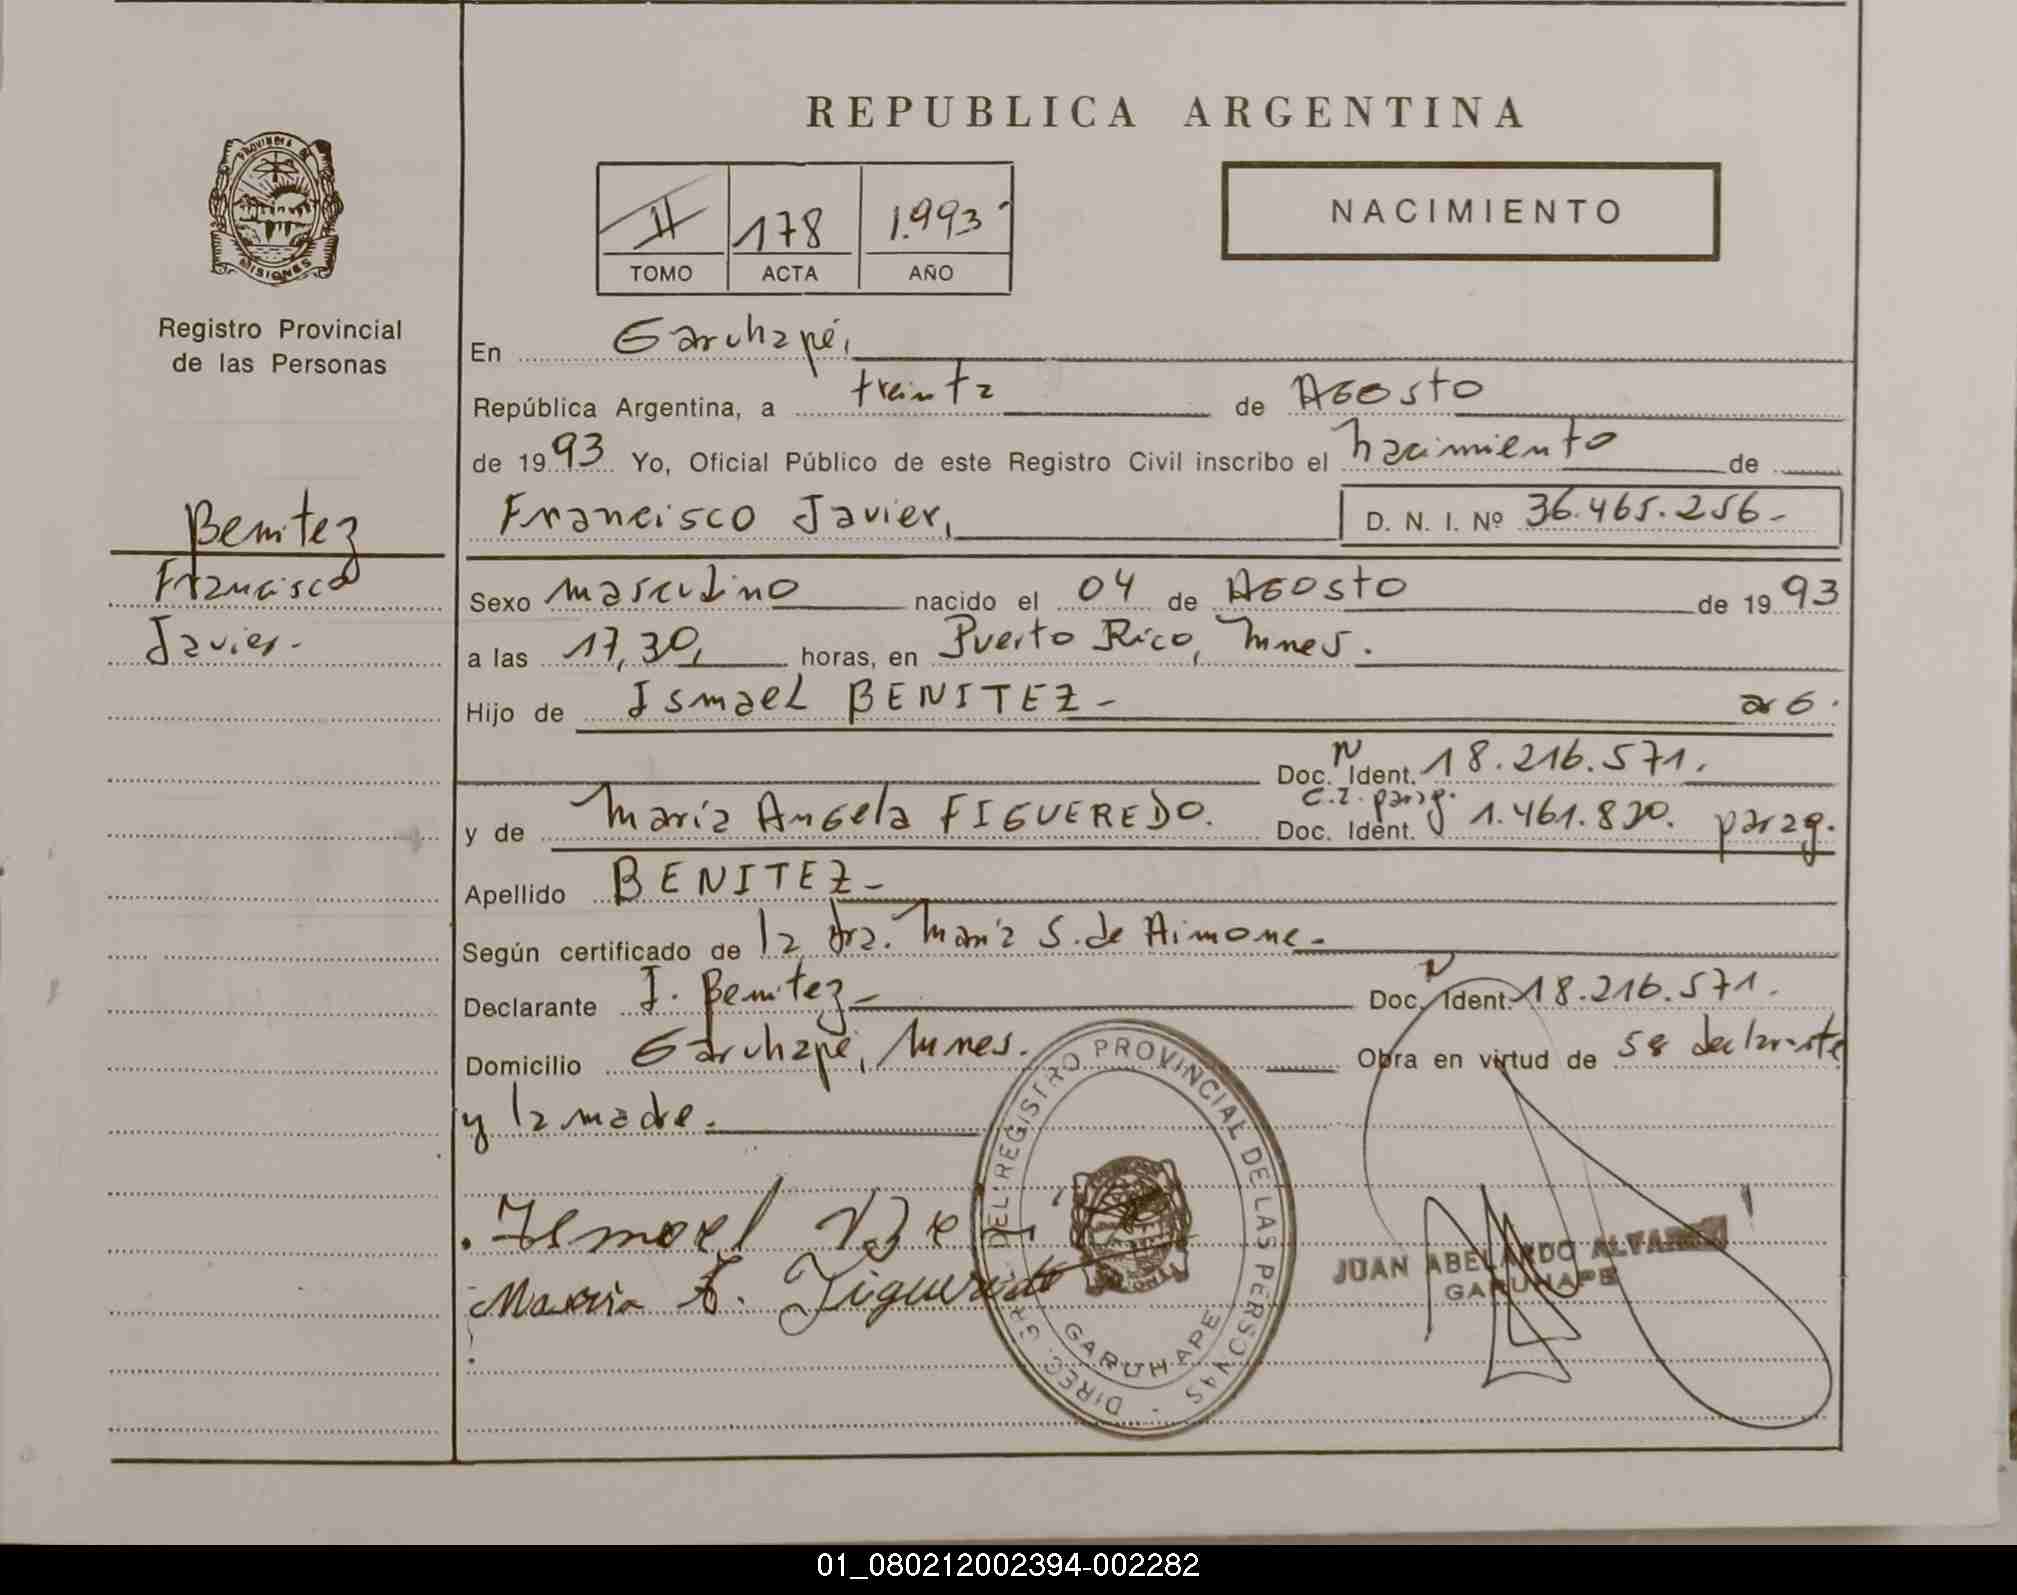 PROVINCIA DE
MISIONES
Registro Provincial
de las Personas
Benitez
Francisco
Javier.-
REPUBLICA ARGENTINA
II 178 1.993
TOMO ACTA AÑO
NACIMIENTO
En Garuhapé,
República Argentina, a treinta de Agosto
de 1993 Yo, Oficial Público de este Registro Civil inscribo el nacimiento de
Francisco Javier, D. N. I. Nº 36.465.256.-
Sexo masculino nacido el 04 de Agosto de 1993
a las 17,30, horas, en Puerto Rico, Mnes.
Hijo de Ismael BENITEZ- arg.
Doc. N Ident. 18.216.571.
y de María Angela FIGUEREDO. Doc. Ident. C.I. parag. 1.461.820. parag.
Apellido BENITEZ-
Según certificado de la dra. María S. de Aimone.-
Declarante I. Benitez- Doc. N Ident. 18.216.571.
Domicilio Garuhapé, Mnes. Obra en virtud de ser declarante
y la madre.
Ismael Be
Maria A. Figueredo
DIREC. GRAL. DEL REGISTRO PROVINCIAL DE LAS PERSONAS
GARUHAPE
JUAN ABELARDO
GARUHAPE
01_080212002394-002282